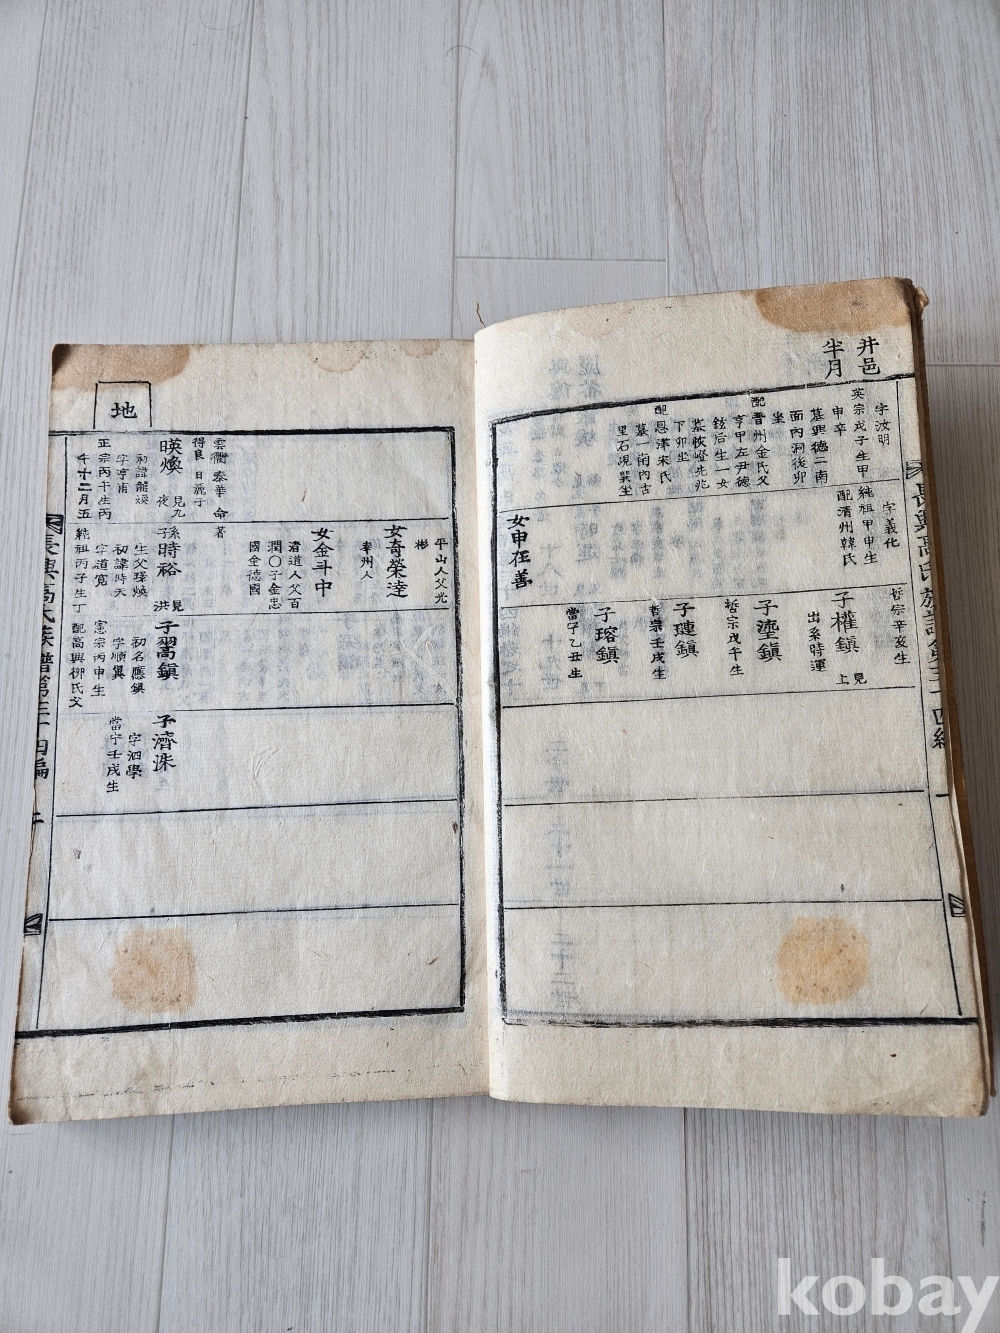 井邑
半月
字汝明
英宗戊子生甲
申卒
墓興德二南
面內洞後卯
坐
配晋州金氏父
亨甲左尹德
鉉后生一女
墓帐嶝先兆
下卯坐
配恩津宋氏
墓一南內古
里石現巽坐
字義化
純祖甲申生
配清州韓氏
女申在善
哲宗辛亥生
子權鎭
見上
出系時運
子瀅鎭
哲宗戊午生
子璉鎭
哲宗壬戌生
子瑢鎭
當宁乙丑生
長興高氏族譜第三十四編
一
地
雲衢 泰華 命著
得良 日旎子
暎煥
見九夜
初諱龍煥
字亨甫
正宗丙午生丙
午十二月五
平山人父光
彬
女奇榮逹
幸州人
女金斗中
清道人父百
潤〇子金忠
國金德國
孫時裕
見洪
生父瑋煥
初諱時天
字道寬
純祖丙子生丁
子翯鎭
初名應鎭
字順翼
憲宗丙申生
配高興柳氏父
子濟洙
字泗學
當宁壬戌生
長興高氏族譜第三十四編
二
kobay